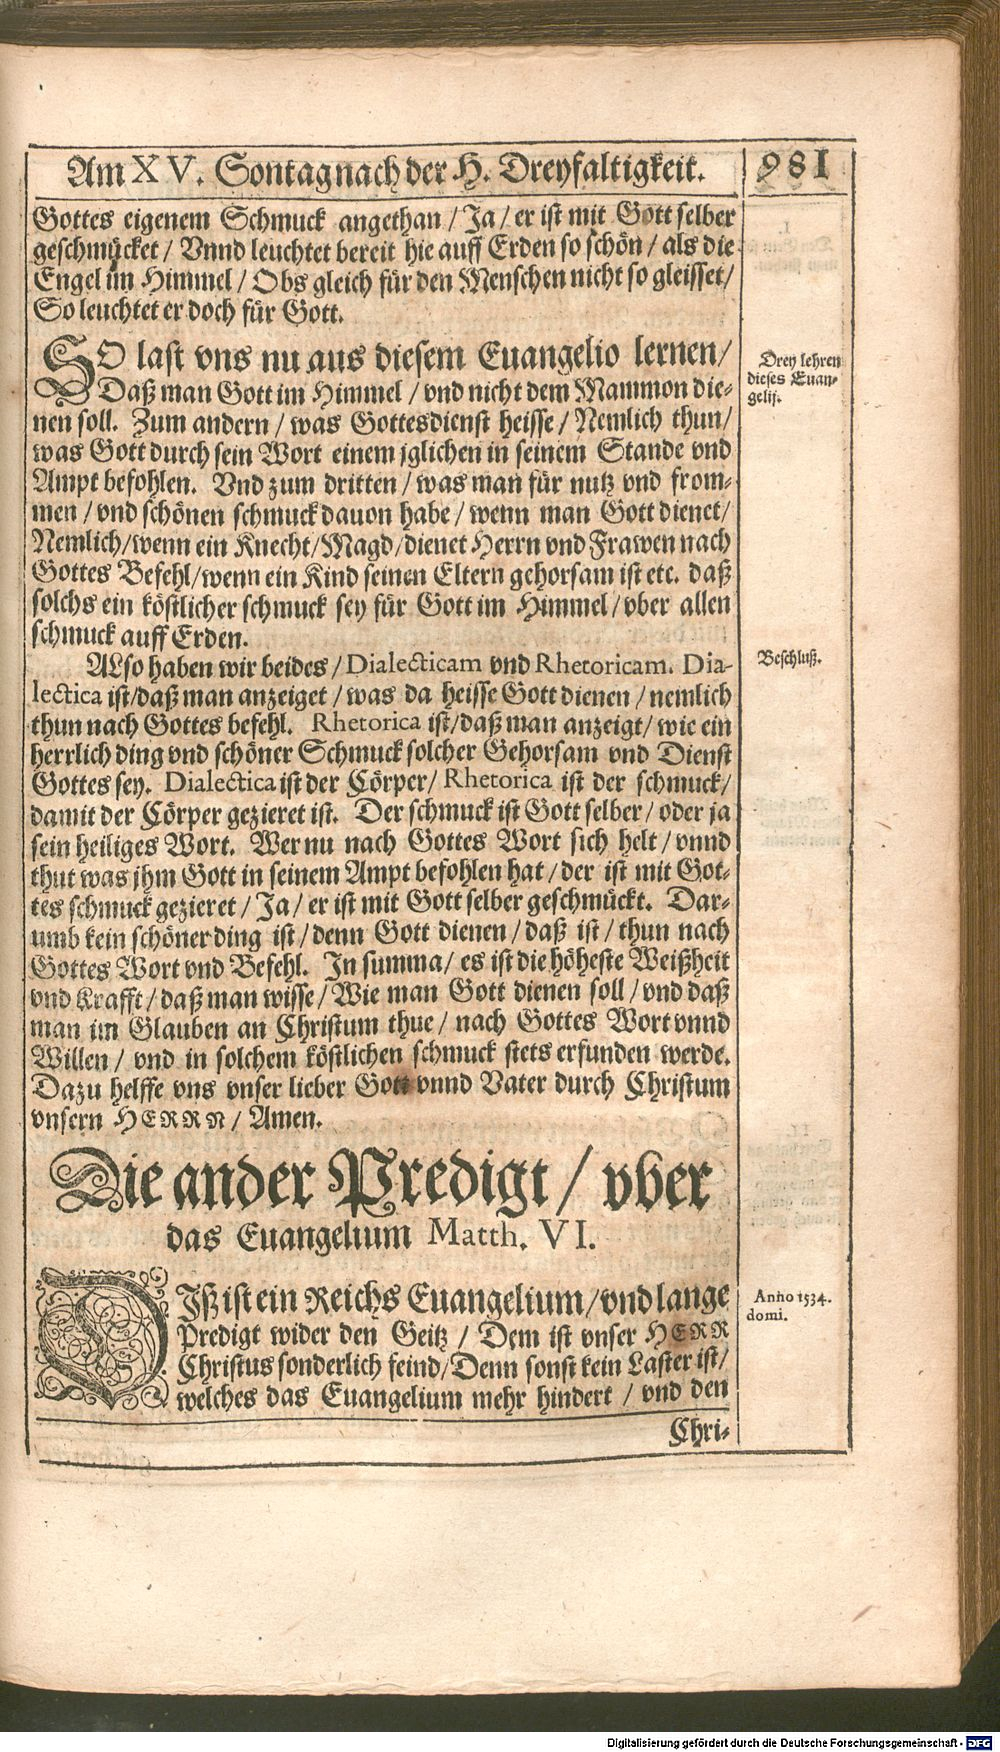 Am XV. Sontag nach der H. Dreyfaltigkeit. 981
Gottes eigenem Schmuck angethan / Ja / er ist mit Gott selber
geschmücket / Vnnd leuchtet bereit hie auff Erden so schön / als die
Engel im Himmel / Obs gleich für den Menschen nicht so gleisset /
So leuchtet er doch für Gott.
SO last vns nu aus diesem Euangelio lernen /
Daß man Gott im Himmel / vnd nicht dem Mammon die-
nen soll. Zum andern / was Gottesdienst heisse / Nemlich thun /
was Gott durch sein Wort einem jglichen in seinem Stande vnd
Ampt befohlen. Vnd zum dritten / was man für nutz vnd from-
men / vnd schönen schmuck dauon habe / wenn man Gott dienet /
Nemlich / wenn ein Knecht / Magd / dienet Herrn vnd Frawen nach
Gottes Befehl / wenn ein Kind seinen Eltern gehorsam ist etc. daß
solchs ein köstlicher schmuck sey für Gott im Himmel / vber allen
schmuck auff Erden.
Drey lehren
dieses Euan-
gelij.
ALso haben wir beides / Dialecticam vnd Rhetoricam. Dia-
lectica ist / daß man anzeiget / was da heisse Gott dienen / nemlich
thun nach Gottes befehl. Rhetorica ist / daß man anzeigt / wie ein
herrlich ding vnd schöner Schmuck solcher Gehorsam vnd Dienst
Gottes sey. Dialectica ist der Cörper / Rhetorica ist der schmuck /
damit der Cörper gezieret ist. Der schmuck ist Gott selber / oder ja
sein heiliges Wort. Wer nu nach Gottes Wort sich helt / vnnd
thut was jhm Gott in seinem Ampt befohlen hat / der ist mit Got-
tes schmuck gezieret / Ja / er ist mit Gott selber geschmückt. Dar-
umb kein schöner ding ist / denn Gott dienen / daß ist / thun nach
Gottes Wort vnd Befehl. In summa / es ist die höheste Weißheit
vnd Krafft / daß man wisse / Wie man Gott dienen soll / vnd daß
man im Glauben an Christum thue / nach Gottes Wort vnnd
Willen / vnd in solchem köstlichen schmuck stets erfunden werde.
Dazu helffe vns vnser lieber Gott vnnd Vater durch Christum
vnsern HERRN / Amen.
Beschluß.
Die ander Predigt / vber
das Euangelium Matth. VI.
DIß ist ein Reichs Euangelium / vnd lange
Predigt wider den Geitz / Dem ist vnser HERR
Christus sonderlich feind / Denn sonst kein Laster ist /
welches das Euangelium mehr hindert / vnd den
Chri-
Anno 1534.
domi.
Digitalisierung gefördert durch die Deutsche Forschungsgemeinschaft - DFG